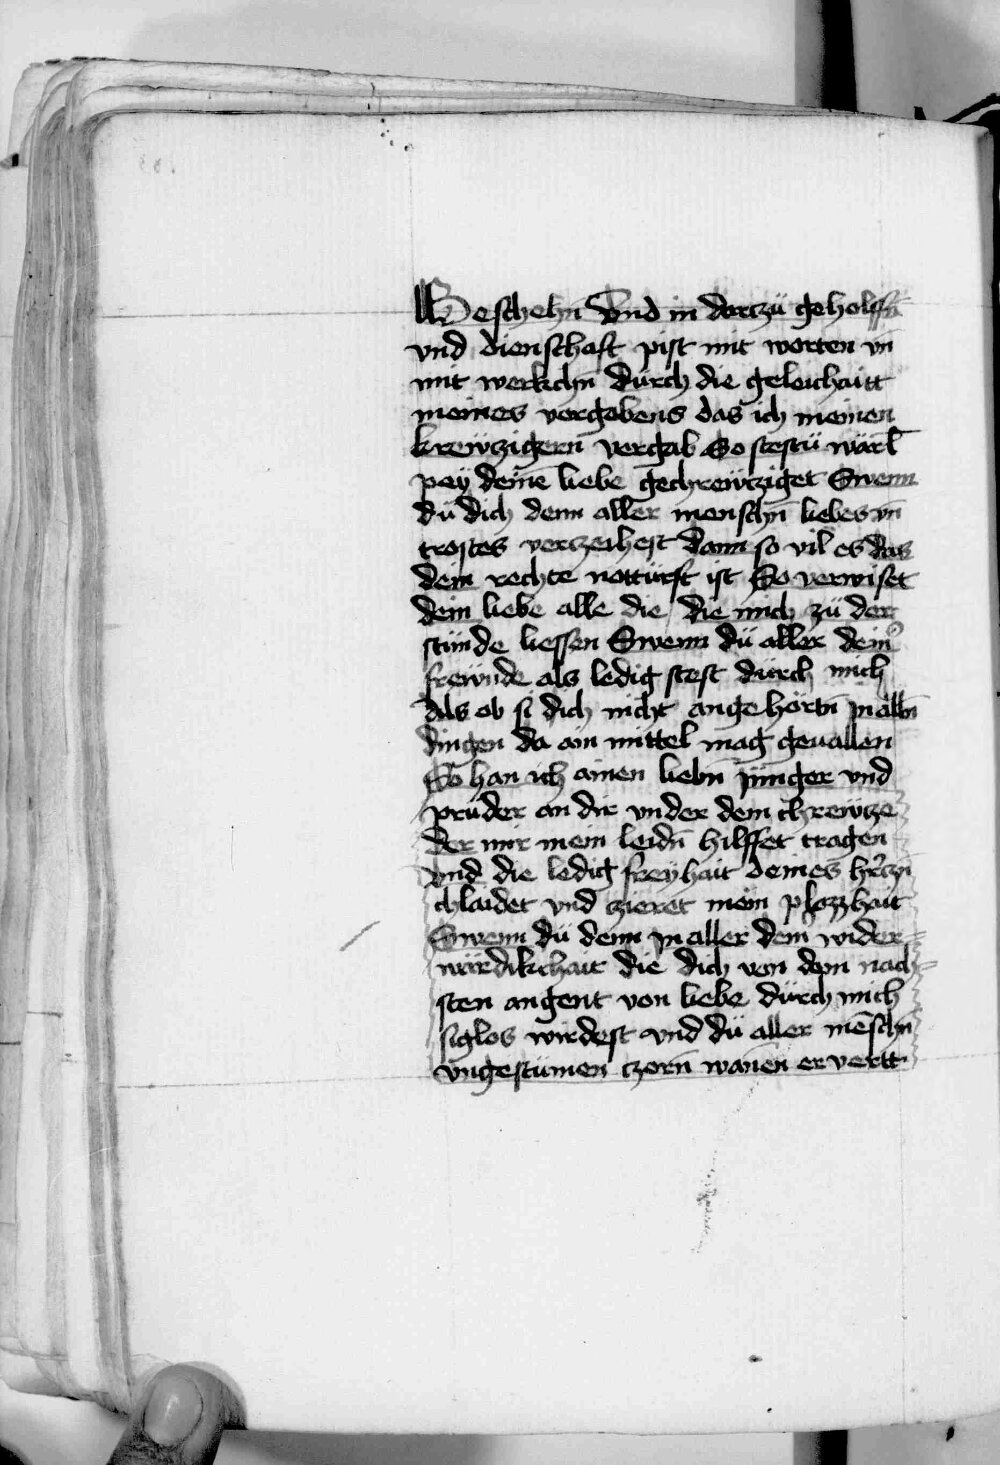 Geschehn̄ Vnd in dortzü geholffn̄
vnd dienschaft pist mit worten vn̄
mit werkchn̄ dürch die geleichaitt
meines vergebens das ich meinen
krewtzigern̄ vergab So stestü wärl̄
pey deine̅ liebe gechrewtziget Swenn
dü dich denn aller menschn̄ liebes vn̄
trostes verczeihest Dann so vil es das
dein rechte nottürft ist So verwiset
dein liebe alle die die mich zü der
stünde liessen Swenn dü aller deinˀ
frewnde als ledig stest dürch mich
Als ob si dich nicht angehörtn̄ jn alln̄
dingen da ain mittel mag geuallen
So han ich ainen liebn̄ jünger vnd
prüder an dir vnder dem chrewtze
der mir mein leidn̄ hilffet tragen
vnd die ledig freyhait deines hˀczn̄
chlaidet vnd czieret mein plozzhait
Swenn dü denn jn aller dem̄ wider=
wärdikchait die dich von dem nach=
sten angent von liebe dürch mich
siglos wirdest vnd dü aller me̅schn̄
vngestümen czorn̄ wanen er vertt